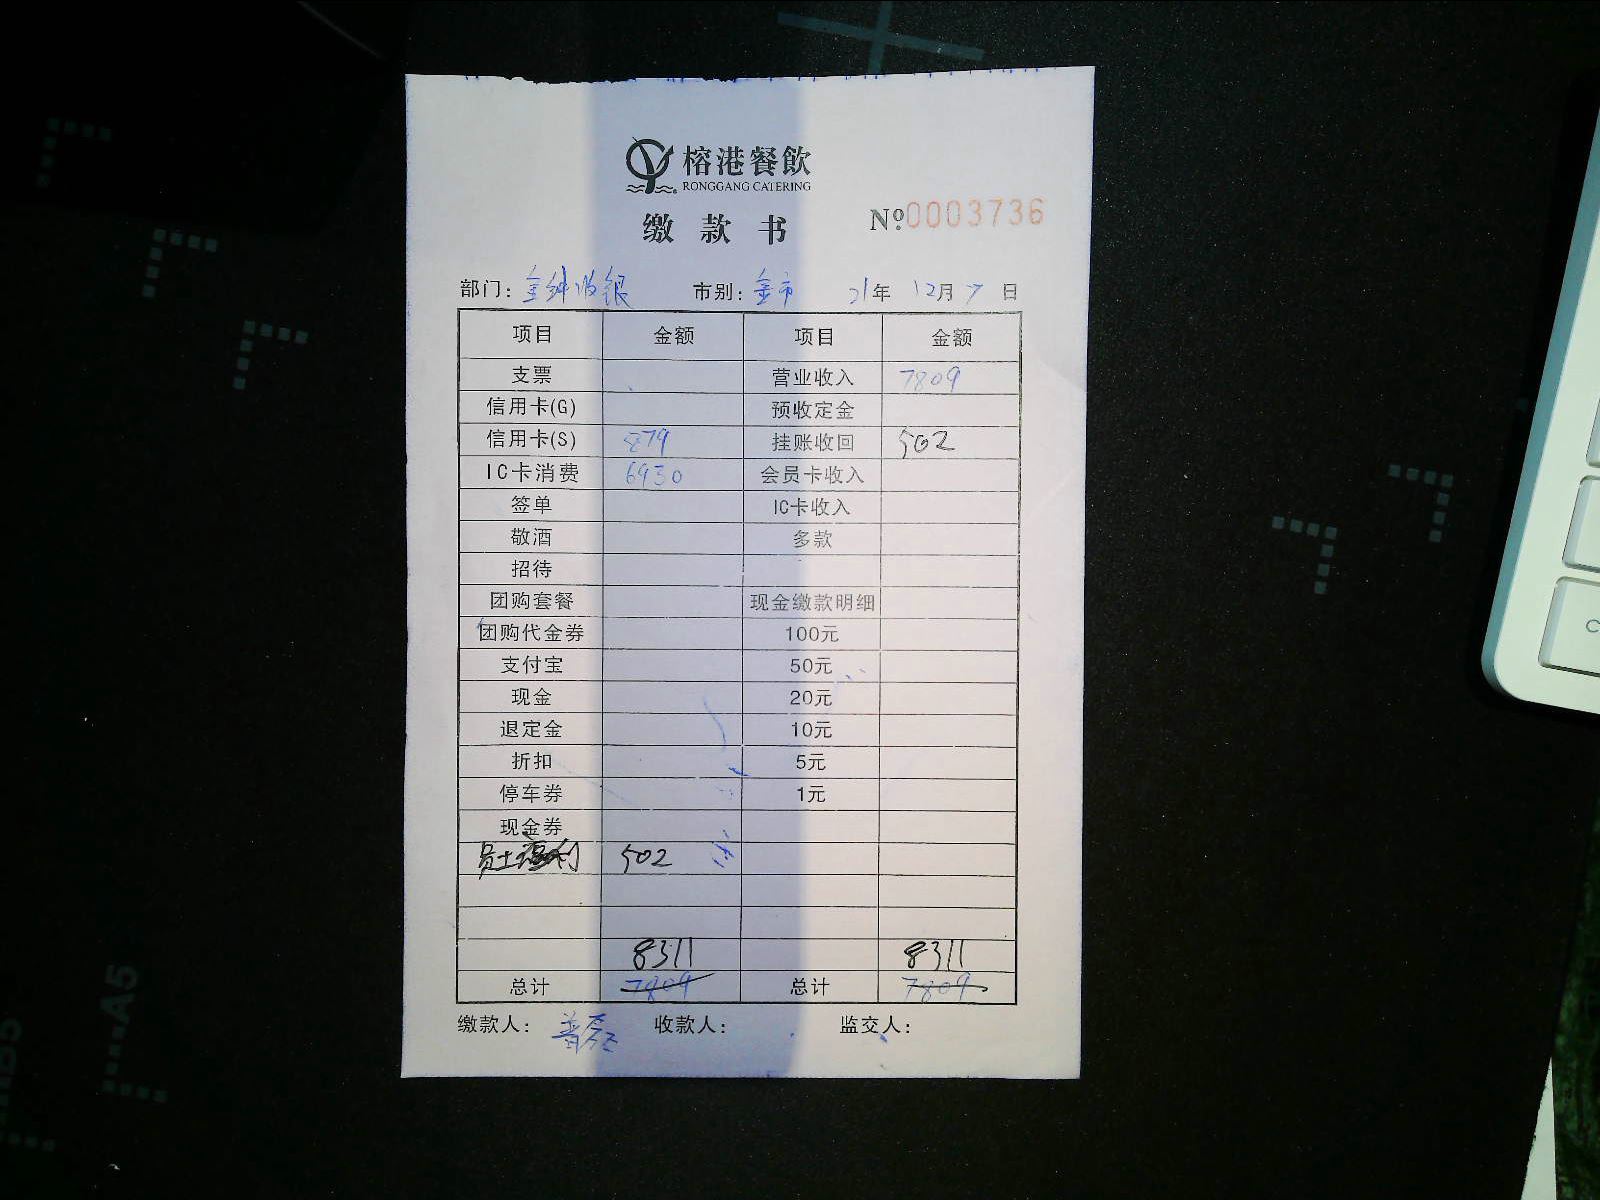 榕港餐飲
RONGGANG CATERING
缴款书 №0003736
部门: 市别: 全市 21年 12月 7日
项目 金额 项目 金额
支票 营业收入 7809
信用卡(G) 预收定金
信用卡(S) 879 挂账收回 502
IC卡消费 6930 会员卡收入
签单 IC卡收入
敬酒 多款
招待
团购套餐 现金缴款明细
团购代金券 100元
支付宝 50元
现金 20元
退定金 10元
折扣 5元
停车券 1元
现金券
员工福利 502
8311 8311
总计 7809 总计 7809
缴款人: 收款人: 监交人:
A5
B5
C